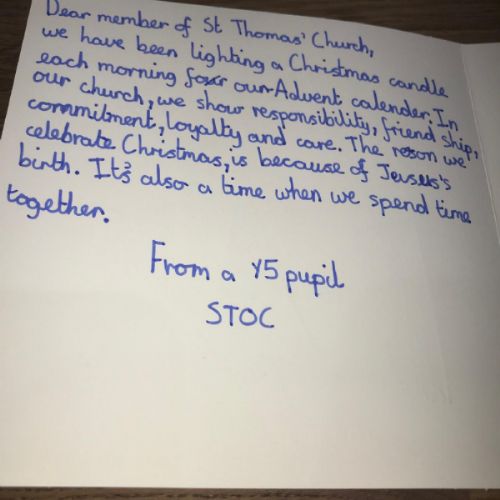 Dear member of St Thomas' Church,
we have been lighting a Christmas candle
each morning for our Advent calender. In
our church, we show responsibility, friend ship,
commitment, loyalty and care. The reson we
celebrate Christmas, is because of Jesus's
birth. It's also a time when we spend time
together.
From a Y5 pupil
STOC